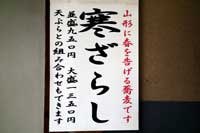 山形に春を告げる蕎麦です
寒ざらし
並盛九五〇円 大盛一三五〇円
天ぷらとの組み合わせもできます